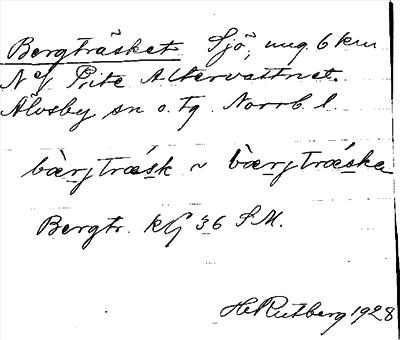 Bergträsket Sjö, ung. 6 km
N of Pite Altervattnet.
Älvsby sn o. tg Norrb. l.
bæ̀rjtræsk ~ bæ̀rjtræske
Bergtr. kG 36 S M.
H Rutberg 1928